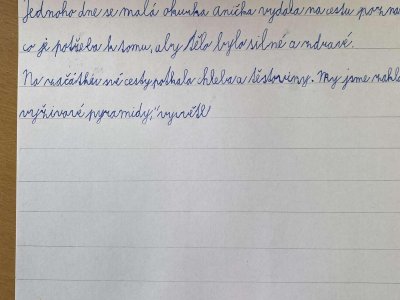 Jednoho dne se malá okurka Anička vydala na cestu poznat
co je potřeba k tomu, aby tělo bylo silné a zdravé.
Na začátku své cesty potkala chleba a těstoviny. My jsme
výživové pyramidy," vysvětl